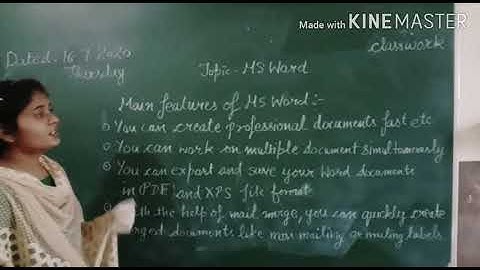 Made with KINEMASTER
classwork
Dated. 16.7.2020
Thursday
Topic - MS Word
Main features of MS Word :-
You can create professional documents fast etc
You can work on multiple document simultaneously
You can export and save your word documents
in PDF and XPS file format
the help of mail merge, you can quickly create
documents like mass mailing or mailing labels.